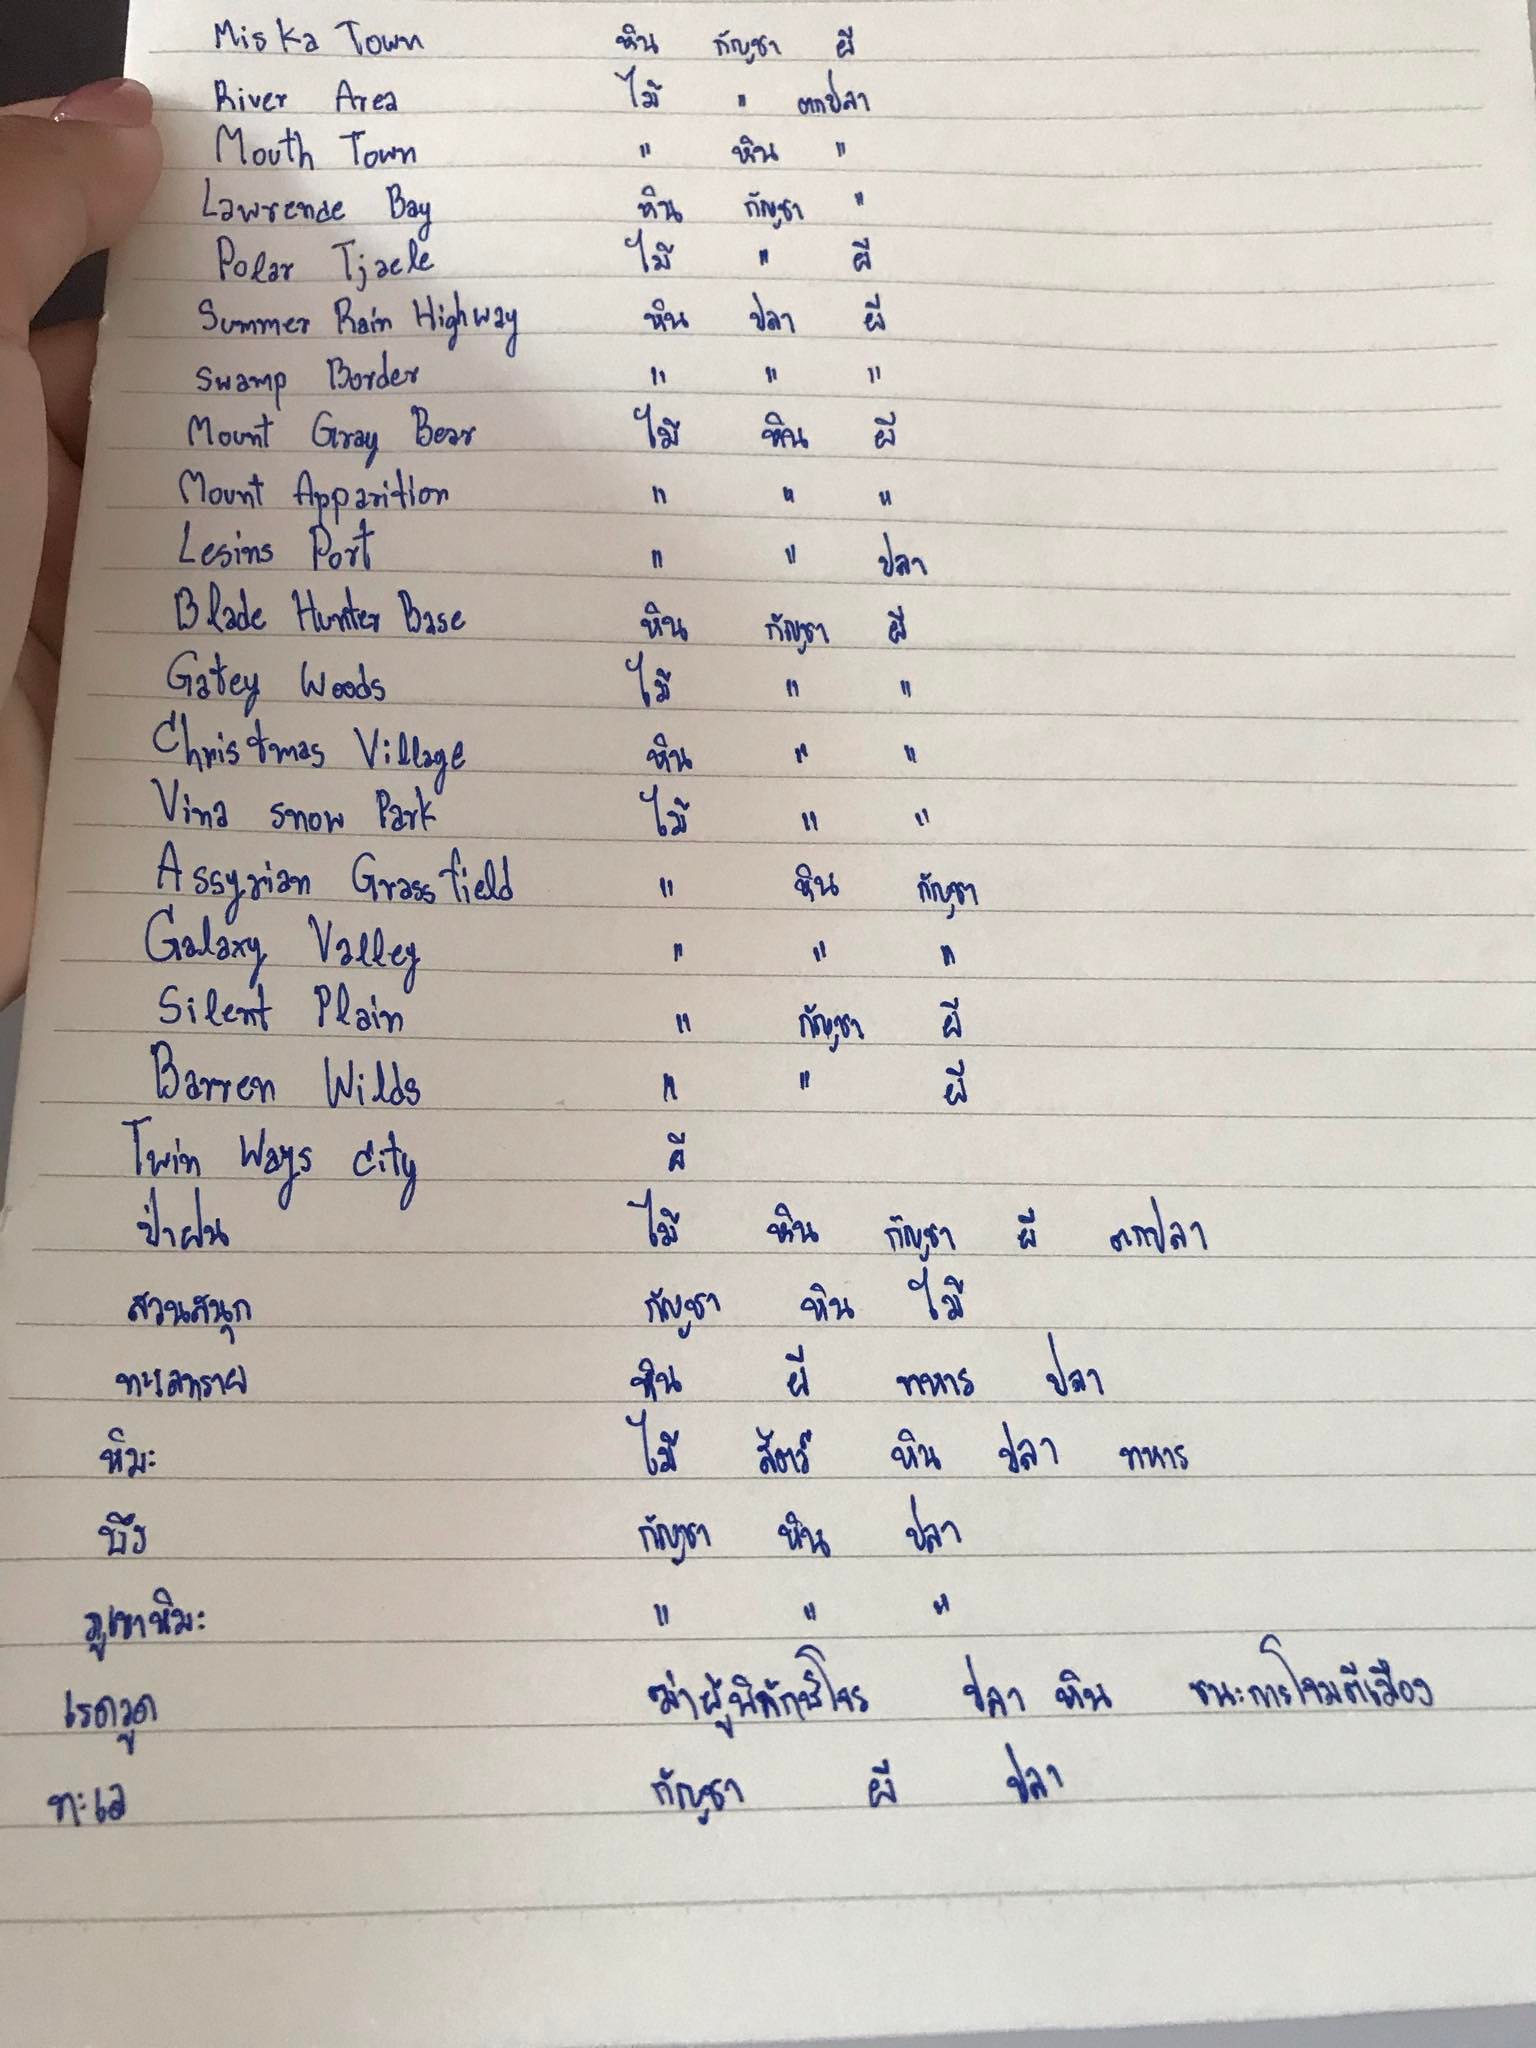 Miska Town หิน กัญชา ผี
River Area ไม้ " ตกปลา
Mouth Town " หิน "
Lawrende Bay หิน กัญชา "
Polar Tjaele ไม้ " ผี
Summer Rain Highway หิน ปลา ผี
Swamp Border " " "
Mount Gray Bear ไม้ หิน ผี
Mount Apparition " " "
Lesins Port " " ปลา
Blade Hunter Base หิน กัญชา ผี
Gatey Woods ไม้ " "
Christmas Village หิน " "
Vina snow Park ไม้ " "
Assyrian Grassfield " หิน กัญชา
Galaxy Valley " " "
Silent Plain " กัญชา ผี
Barren Wilds " " ผี
Twin Ways city ผี
ป่าฝน ไม้ หิน กัญชา ผี ตกปลา
สวนสนุก กัญชา หิน ไม้
ทะเลทราย หิน ผี ทหาร ปลา
หิมะ ไม้ สัตว์ หิน ปลา ทหาร
บึง กัญชา หิน ปลา
ภูเขาหิมะ " " "
เรดวูด ฆ่าผู้พิทักษ์โจร ปลา หิน ชนะการโจมตีเมือง
ทะเล กัญชา ผี ปลา